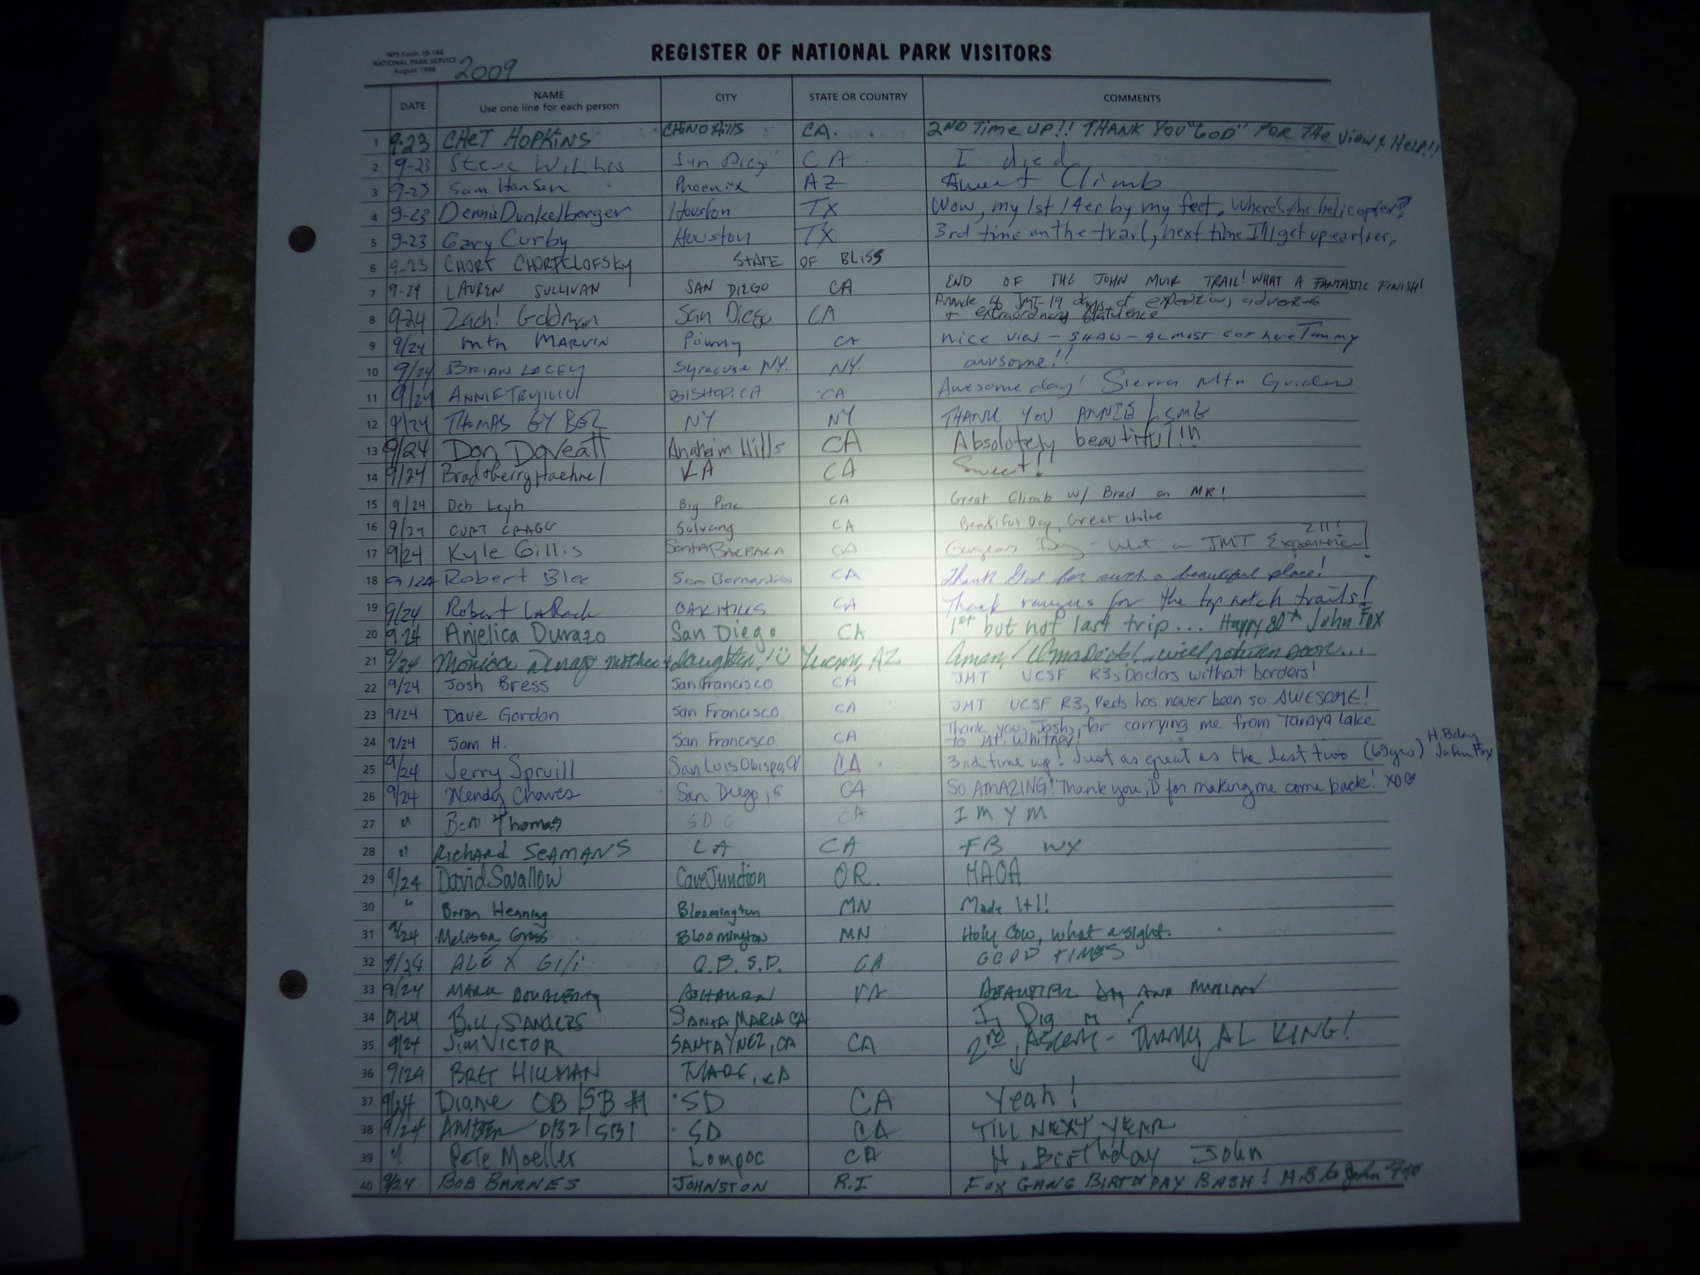 NPS Form 10-144
NATIONAL PARK SERVICE
August 1998
2009
REGISTER OF NATIONAL PARK VISITORS
DATE NAME CITY STATE OR COUNTRY COMMENTS
Use one line for each person
1 9-23 CHET HOPKINS CHINO Hills CA. 2ND Time UP!! THANK YOU "GOD" FOR THE View & Help!!
2 9-23 Steve San Diego CA I died
3 9-23 Sam Hansen Phoenix AZ Climb
4 9-23 Dennis Dunkelberger Houston TX Wow, my 1st 14er by my feet. Where's the helicopter?
5 9-23 Gary Curby Houston TX 3rd time on the trail, next time I'll get up earlier.
6 9-23 CHORT CHORTELOFSKY STATE OF BLISS
7 9-24 LAUREN SULLIVAN SAN DIEGO CA END OF THE JOHN MUIR TRAIL! WHAT A FANTASTIC FINISH!
8 9-24 Zach! Goldman San Diego CA JMT-19 days of adventure
+ extraordinary flatulence
9 9/24 mtn MARVIN CA nice view - SHAW - almost Tommy
10 9/24 BRIAN LACEY Syracuse NY. NY. awesome!!
11 9/24 ANNIE TRUJILLO BISHOP, CA CA Awesome day! Sierra Mtn Guides
12 9/24 THOMAS NY NY THANK YOU ANNIE & SMG
13 9/24 Don Anaheim Hills CA Absolutely beautiful!!!
14 9/24 LA CA Sweet!
15 9/24 Deb Leigh Big Pine CA Great Climb w/ Brad on MR!
16 9/24 CURT CRAGG Solvang CA Beautiful Day, Great
17 9/24 Kyle Gillis SANTA BARBARA CA Gorgeous Day - What a JMT Experience!
18 9/24 Robert San Bernardino CA Thank God for such a beautiful place!
19 9/24 Robert LaRock OAK HILLS CA Thank rangers for the top notch trails!
20 9-24 Anjelica Durazo San Diego CA 1st but not last trip... Happy 80th John Fox
21 9/24 Monica Durazo mother & daughter! Tucson, AZ Amen! I made it! .. will return soon...
22 9/24 Josh Bress San Francisco CA JMT UCSF R3, Doctors without borders!
23 9/24 Dave Gordon San Francisco CA JMT UCSF R3, Peds has never been so AWESOME!
24 9/24 Sam H. San Francisco CA Thank you, Josh, for carrying me from Tenaya Lake
to Mt. Whitney!
25 9/24 Jerry Spruill San Luis Obispo, CA CA 3rd time up! Just as great as the last two (69yrs) H. Bday John Fox
26 9/24 Wendy Chaves San Diego, CA CA SO AMAZING! Thank you, D for making me come back! XOXO
27 " Ben Thomas CA I M Y M
28 " Richard SEAMANS LA CA FB WX
29 9/24 David Swallow Cave Junction OR.
30 " Brian Henning Bloomington MN Made it!!
31 9/24 Melissa Gross Bloomington MN Holy Cow, what a sight.
32 9/24 ALEX O.B. S.D. CA GOOD TIMES
33 9/24 MARK ASHBURN VA BEAUTIFUL
34 9-24 Bill SANDERS SANTA MARIA CA I Dig
35 9/24 Jim VICTOR SANTA YNEZ, CA CA 2nd Ascent - AL KING!
36 9/24 BRET HILLMAN
37 9/24 Diane OB/SB #1 SD CA Yeah!
38 9/24 AMBER SD CA TILL NEXT YEAR
39 " Pete Moeller Lompoc CA H. Birthday John
40 9/24 BOB BARNES JOHNSTON R.I FOX GANG BIRTHDAY BASH! H.B. to John Fox